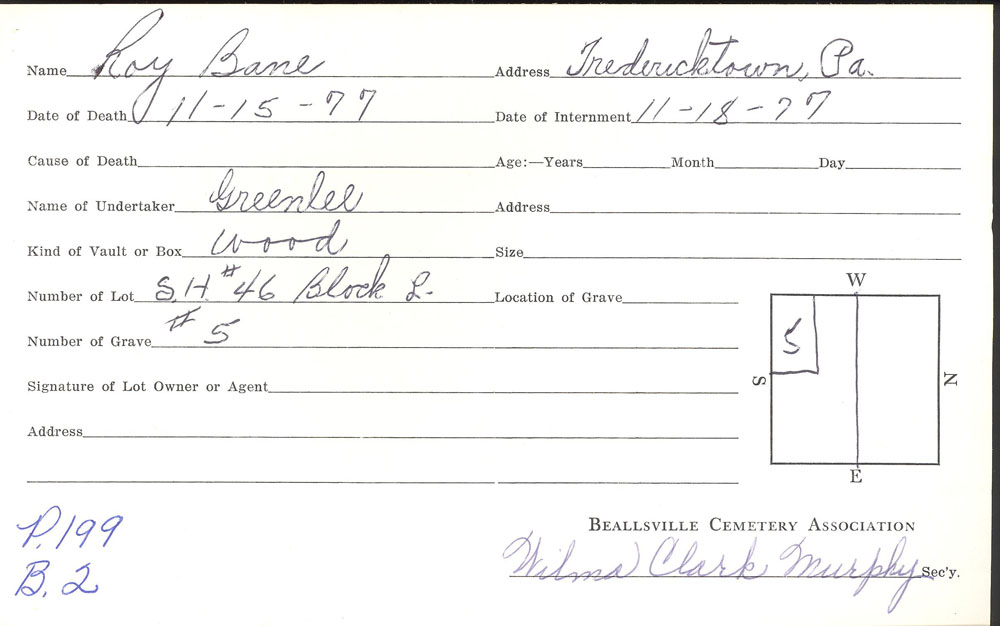 Name Roy Bane Address Fredericktown, Pa.
Date of Death 11-15-77 Date of Internment 11-18-77
Cause of Death Age:—Years Month Day
Name of Undertaker Greenlee Address
Kind of Vault or Box Wood Size
Number of Lot S.H. #46 Block L. Location of Grave
Number of Grave #5
Signature of Lot Owner or Agent
Address
W
5
S N
E
P. 199
B. 2
BEALLSVILLE CEMETERY ASSOCIATION
Wilma Clark Murphy Sec'y.